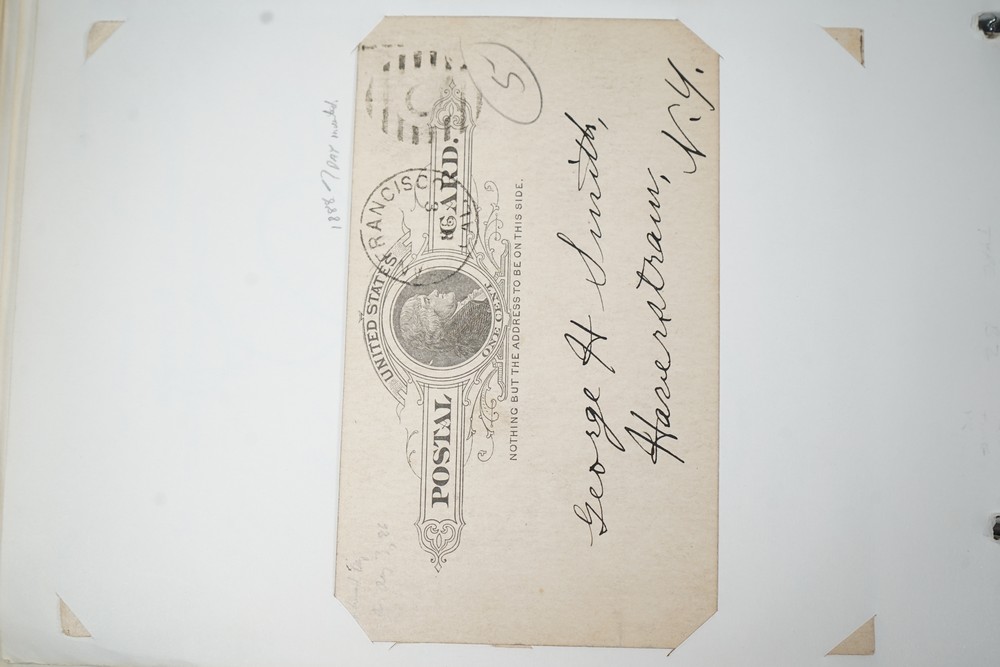 UNITED STATES
POSTAL CARD.
ONE CENT
NOTHING BUT THE ADDRESS TO BE ON THIS SIDE.
FRANCISCO
5
George H Smith,
Haverstraw, N.Y.
1888
DAY